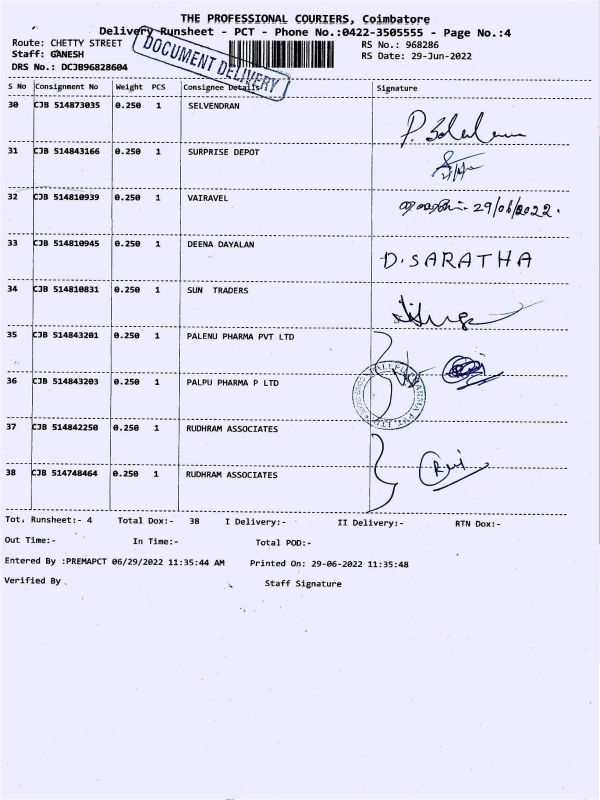 THE PROFESSIONAL COURIERS, Coimbatore
Delivery Runsheet - PCT - Phone No.:0422-3505555 - Page No.:4
Route: CHETTY STREET RS No.: 968286
Staff: GANESH RS Date: 29-Jun-2022
DRS No.: DCJB96828604
DOCUMENT DELIVERY
S No Consignment No Weight PCS Consignee Details Signature
30 CJB 514873035 0.250 1 SELVENDRAN
31 CJB 514843166 0.250 1 SURPRISE DEPOT
32 CJB 514810939 0.250 1 VAIRAVEL 29/06/2022.
33 CJB 514810945 0.250 1 DEENA DAYALAN D.SARATHA
34 CJB 514810831 0.250 1 SUN TRADERS
35 CJB 514843201 0.250 1 PALENU PHARMA PVT LTD
36 CJB 514843203 0.250 1 PALPU PHARMA P LTD
37 CJB 514842250 0.250 1 RUDHRAM ASSOCIATES
38 CJB 514748464 0.250 1 RUDHRAM ASSOCIATES
Tot. Runsheet:- 4 Total Dox:- 38 I Delivery:- II Delivery:- RTN Dox:-
Out Time:- In Time:- Total POD:-
Entered By :PREMAPCT 06/29/2022 11:35:44 AM Printed On: 29-06-2022 11:35:48
Verified By Staff Signature